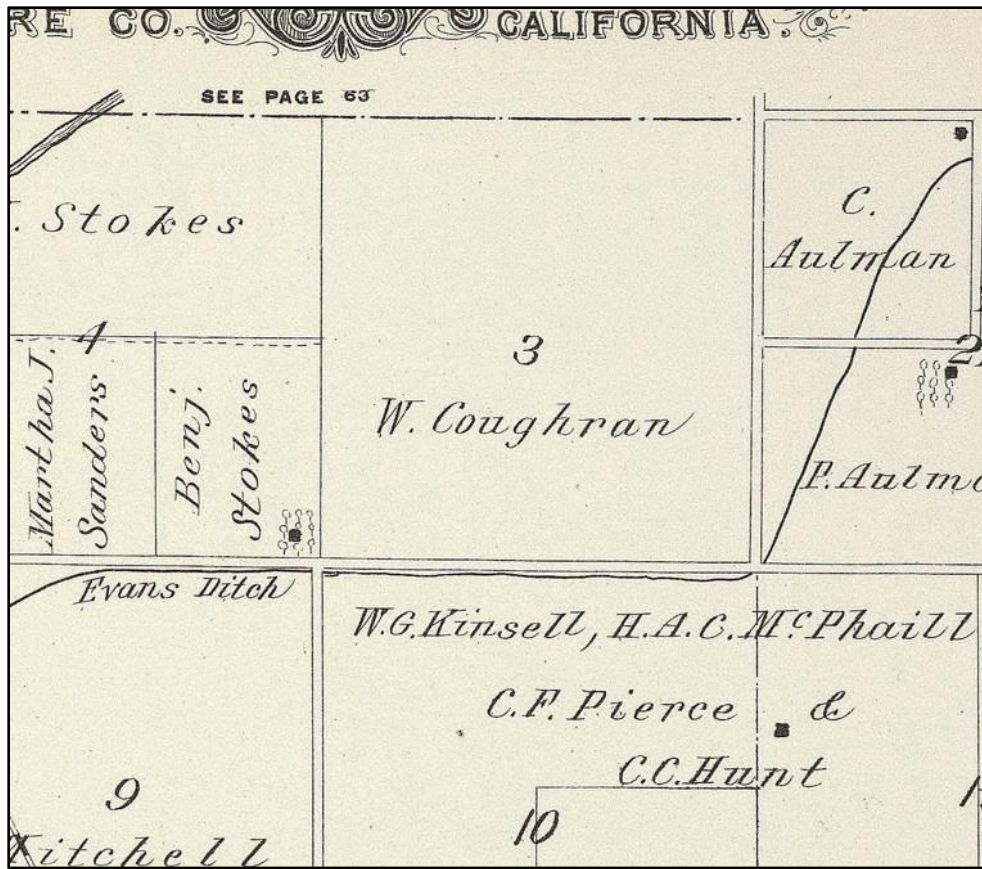 RE CO. CALIFORNIA.
SEE PAGE 63
. Stokes
C.
Aulman
4
3
2
Martha J.
Sanders
Benj.
Stokes
W. Coughran
P. Aulma
Evans Ditch
W.G. Kinsell, H.A.C. McPhaill
C.F. Pierce &
C.C. Hunt
9
10
1
itchell